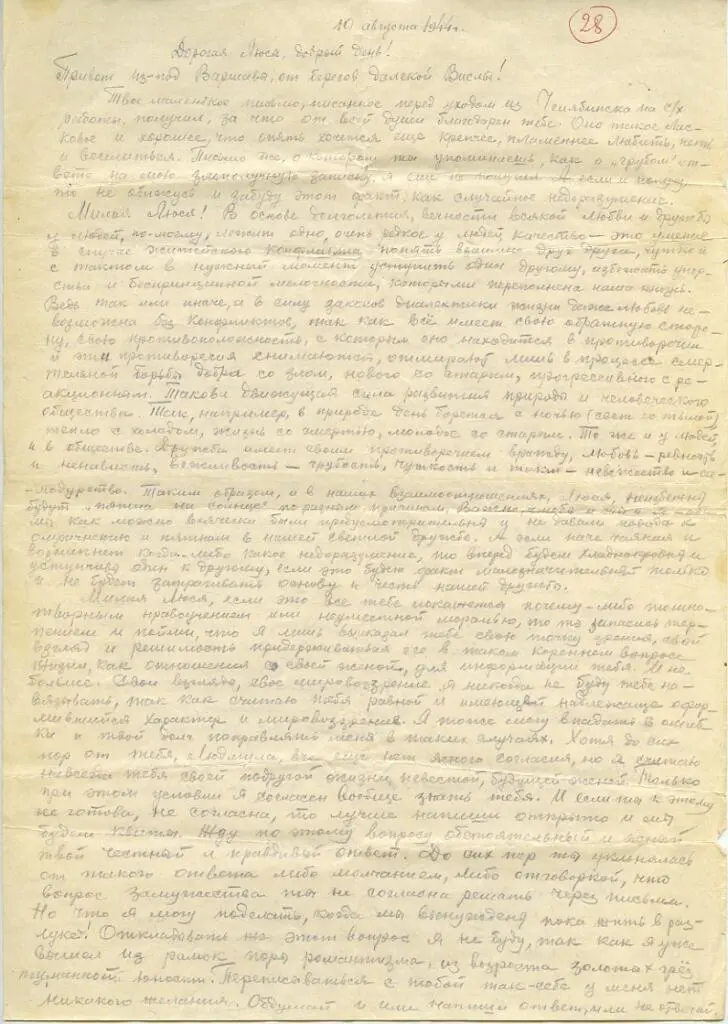 28
10 августа 1944 г.
Дорогая Люся, добрый день!
Привет из-под Варшавы, от берегов далекой Вислы!
Твое маленькое письмо, писанное перед уходом из Челябинска на с/х
работы, получил, за что от всей души благодарен тебе. Оно такое лас-
ковое и хорошее, что опять хочется еще крепче, пламеннее любить, петь
и веселиться. Письмо же, о котором ты упоминаешь, как о "грубом" от-
вете на мою злополучную записку, я еще не получил. А если и получу,
то не обижусь и забуду этот факт, как случайное недоразумение.
Милая Люся! В основе долголетия, вечности всякой любви и дружбы
у людей, по-моему, лежит одно, очень редкое у людей качество – это умение
в случае житейского конфликта понять взаимно друг друга, чутко и
с тактом в нужный момент уступить один другому, избежать упор-
ства и беспринципной мелочности, которыми переполнена наша жизнь.
Ведь так или иначе, а в силу законов диалектики жизни даже любовь не-
возможна без конфликтов, так как всё имеет свою обратную сторо-
ну, свою противоположность, с которым оно находится в противоречии
и эти противоречия снимаются, отмирают лишь в процессе смер-
тельной борьбы добра со злом, нового со старым, прогрессивного с ре-
акционным. Такова движущая сила развития природы и человеческого
общества. Так, например, в природе день борется с ночью (свет со тьмой)
тепло с холодом, жизнь со смертью, молодое со старым. То же и у людей,
и в обществе. Дружба имеет своим противоречием вражду, любовь – ревность
и ненависть, вежливость – грубость, чуткость и такт – невежество и са-
модурство. Таким образом, и в наших взаимоотношениях, Люся, неизбежно
будут "пятна на солнце" по разным причинам. Важно, чтобы
мы как можно всячески были предусмотрительны и не давали повода к
омрачению и пятнам в нашей светлой дружбе. А если паче чаяния и
возникнет когда-либо какое недоразумение, то вперед будем хладнокровны и
уступчивы один к другому, если это будет факт малозначительный только
и не будет затрагивать основу и честь нашей дружбы.
Милая Люся, если это все тебе покажется почему-либо тошно-
творным нравоучением или неуместной моралью, то ты запасись тер-
пением и пойми, что я лишь высказал тебе свою точку зрения, свой
взгляд и решимость придерживаться его в таком коренном вопросе
жизни, как отношения со своей женой, для информации тебя. И не
больше. Свои взгляды, свое мировоззрение я никогда не буду тебе на-
вязывать, так как считаю тебя равной и имеющей наблежаще офор-
мившийся характер и мировоззрение. Я тоже могу впадать в ошиб-
ки и твой долг поправлять меня в таких случаях. Хотя до сих
пор от тебя, Людмила, все еще нет ясного согласия, но я считаю
навсегда тебя своей подругой жизни, невестой, будущей женой. Только
при этом условии я согласен вообще знать тебя. И если ты к этому
не готова, не согласна, то лучше напиши открыто и мы
будем квиты. Жду по этому вопросу обстоятельный и ясный
твой честный и правдивый ответ. До сих пор ты уклонялась
от такого ответа либо молчанием, либо отговоркой, что
вопрос замужества ты не согласна решать через письма.
Но что я могу поделать, когда мы вынуждены пока жить в раз-
луке! Откладывать же этот вопрос я не буду, так как я уже
вышел из рамок поры романтизма, из возраста золотых грёз
туманной юности. Переписываться с тобой так-себе у меня нет
никакого желания. Обдумай и или напиши ответ, или не отвечай